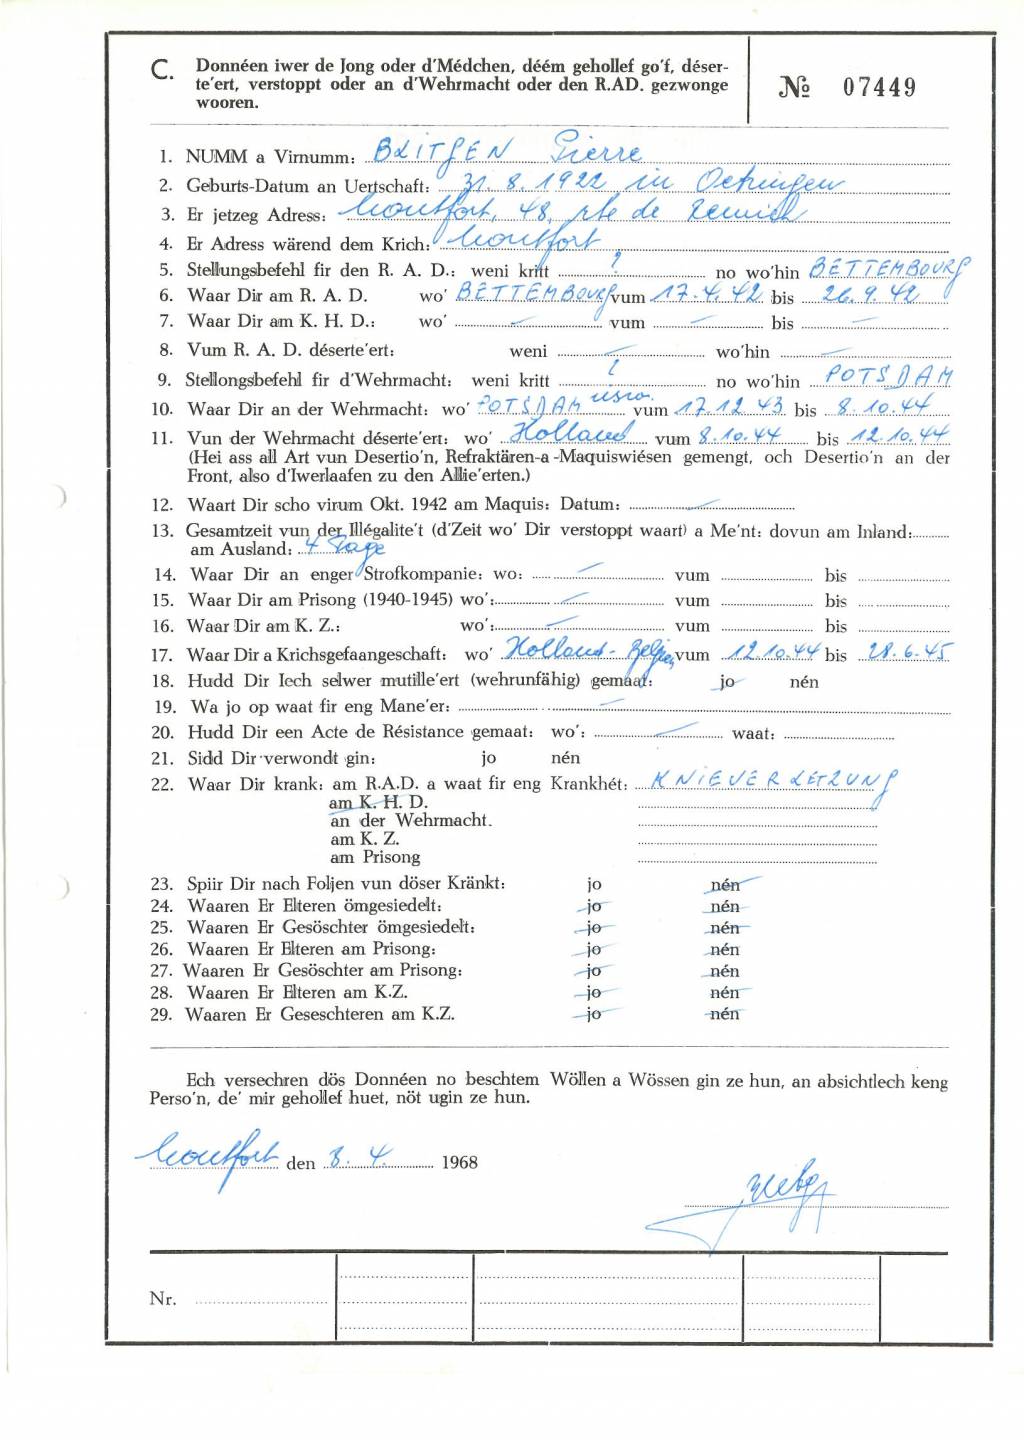 C. Donnéen iwer de Jong oder d'Médchen, déém gehollef go'f, déser-
te'ert, verstoppt oder an d'Wehrmacht oder den R.AD. gezwonge
wooren.
№ 07449
1. NUMM a Virnumm: BLITGEN Pierre
2. Geburts-Datum an Uertschaft: 31. 8. 1922 in Oetringen
3. Er jetzeg Adress: Moutfort, 48, rte de Remich
4. Er Adress wärend dem Krich: Moutfort
5. Stellungsbefehl fir den R. A. D.: weni kritt ? no wo'hin BETTEMBOURG
6. Waar Dir am R. A. D. wo' BETTEMBOURG vum 17.4.42 bis 26.9.42
7. Waar Dir am K. H. D.: wo' — vum — bis —
8. Vum R. A. D. déserte'ert: weni — wo'hin —
9. Stellongsbefehl fir d'Wehrmacht: weni kritt ? no wo'hin POTSDAM
10. Waar Dir an der Wehrmacht: wo' POTSDAM usw. vum 17.12.43 bis 8.10.44
11. Vun der Wehrmacht déserte'ert: wo' Holland vum 8.10.44 bis 12.10.44
(Hei ass all Art vun Desertio'n, Refraktären-a-Maquiswiésen gemengt, och Desertio'n an der
Front, also d'Iwerlaafen zu den Allie'erten.)
12. Waart Dir scho virum Okt. 1942 am Maquis: Datum: —
13. Gesamtzeit vun der Illégalite't (d'Zeit wo' Dir verstoppt waart) a Me'nt: dovun am Inland:
am Ausland: 4 Tage
14. Waar Dir an enger Strofkompanie: wo: — vum bis
15. Waar Dir am Prisong (1940-1945) wo': — vum bis
16. Waar Dir am K. Z.: wo': — vum bis
17. Waar Dir a Krichsgefaangeschaft: wo' Holland - Belgien vum 12.10.44 bis 28.6.45
18. Hudd Dir Iech selwer mutille'ert (wehrunfähig) gemaat: jo nén
19. Wa jo op waat fir eng Mane'er: —
20. Hudd Dir een Acte de Résistance gemaat: wo': — waat:
21. Sidd Dir verwondt gin: jo nén
22. Waar Dir krank: am R.A.D. a waat fir eng Krankhét: KNIEVERLETZUNG
am K. H. D.
an der Wehrmacht.
am K. Z.
am Prisong
23. Spiir Dir nach Foljen vun döser Kränkt: jo nén
24. Waaren Er Elteren ömgesiedelt: jo nén
25. Waaren Er Gesöschter ömgesiedelt: jo nén
26. Waaren Er Elteren am Prisong: jo nén
27. Waaren Er Gesöschter am Prisong: jo nén
28. Waaren Er Elteren am K.Z. jo nén
29. Waaren Er Geseschteren am K.Z. jo nén
Ech versechren dös Donnéen no beschtem Wöllen a Wössen gin ze hun, an absichtlech keng
Perso'n, de' mir gehollef huet, nöt ugin ze hun.
Moutfort den 3. 4. 1968
Nr.